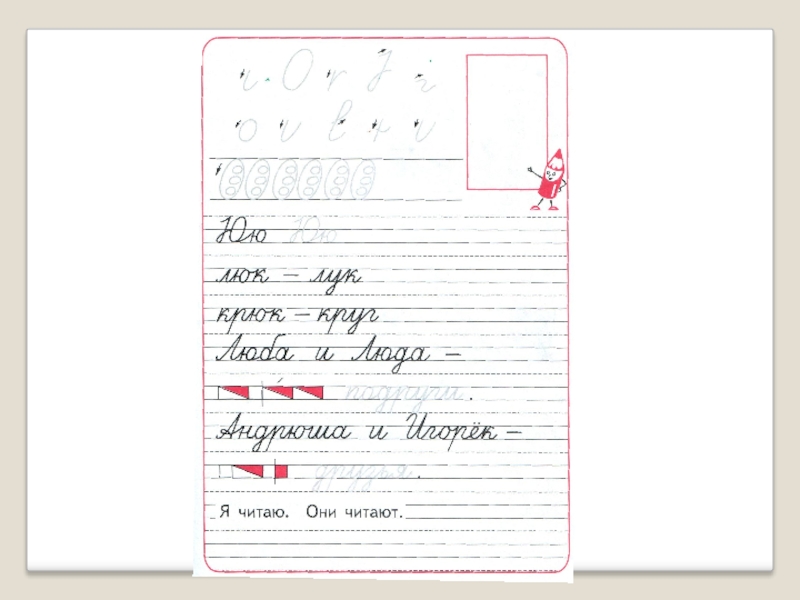 Юю Юю
люк – лук
крюк – круг
Люба и Люда –
подруги.
Андрюша и Игорёк –
друзья.
Я читаю. Они читают.